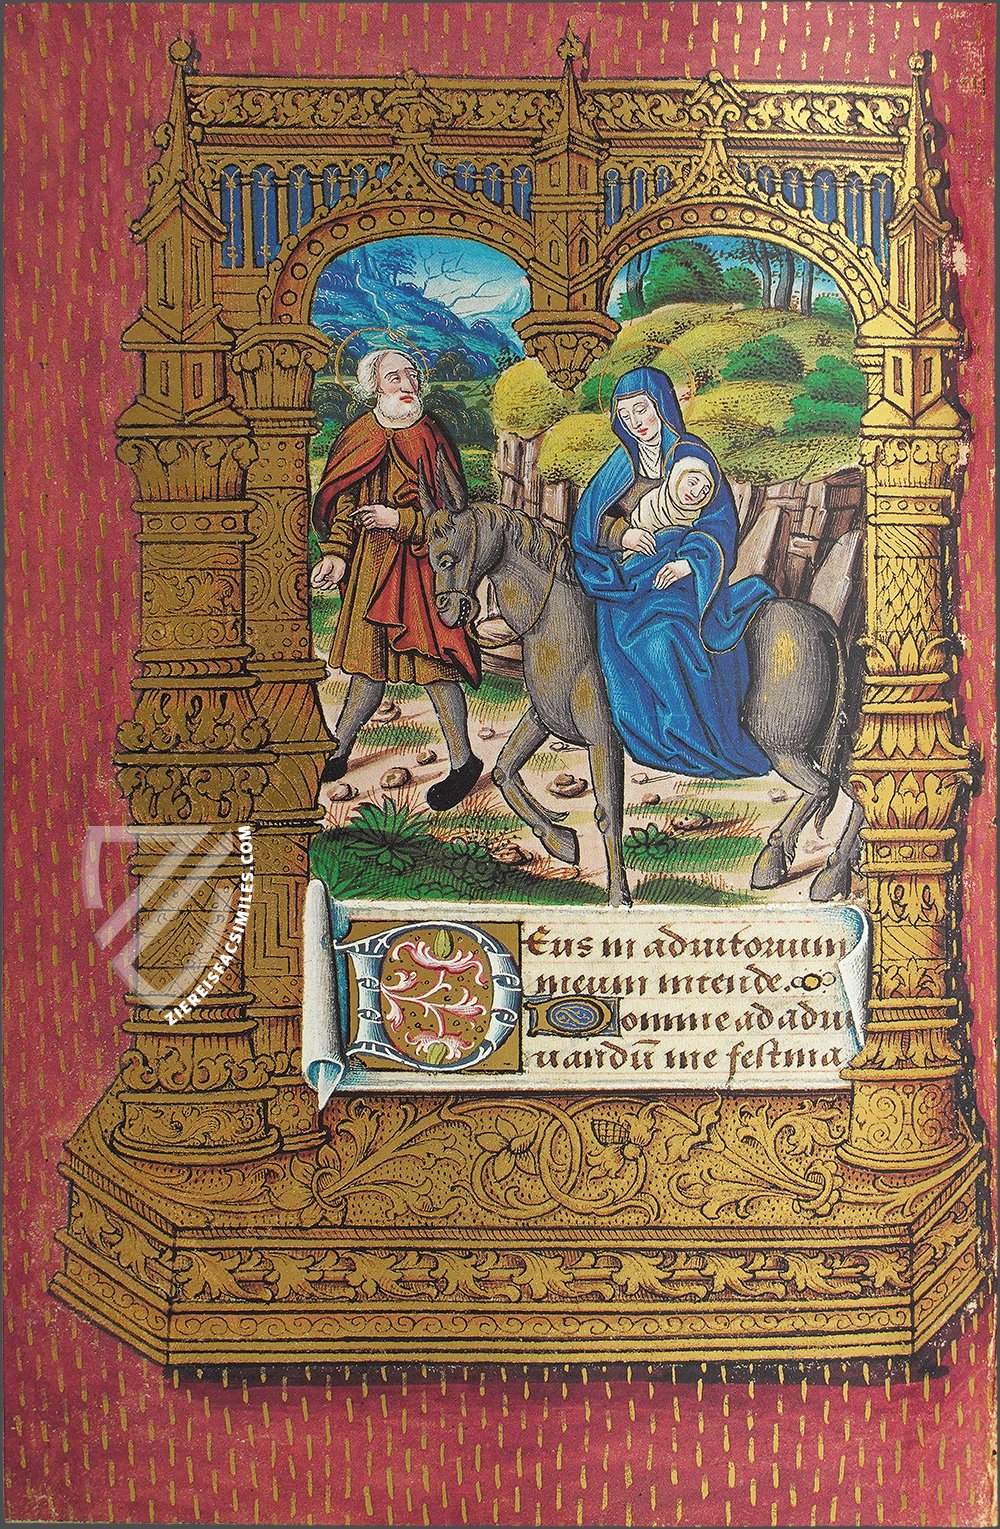 Deus in adiutorium
meum intende.
Domine ad adiu
uandū me festina
ZIEREISFACSIMILES.COM